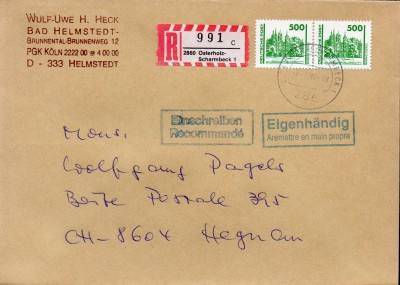 WULF-UWE H. HECK
BAD HELMSTEDT-
BRUNNENTAL-BRUNNENWEG 12
PGK KÖLN 2222 00 - 4 00 00
D - 333 HELMSTEDT
R 991 C
2860 Osterholz-
Scharmbeck 1
500
500
Einschreiben
Recommandé
Eigenhändig
A remettre en main propre
Mons.
Wolfgang Pagels
Boîte Postale 395
CH-8604 Hegnau